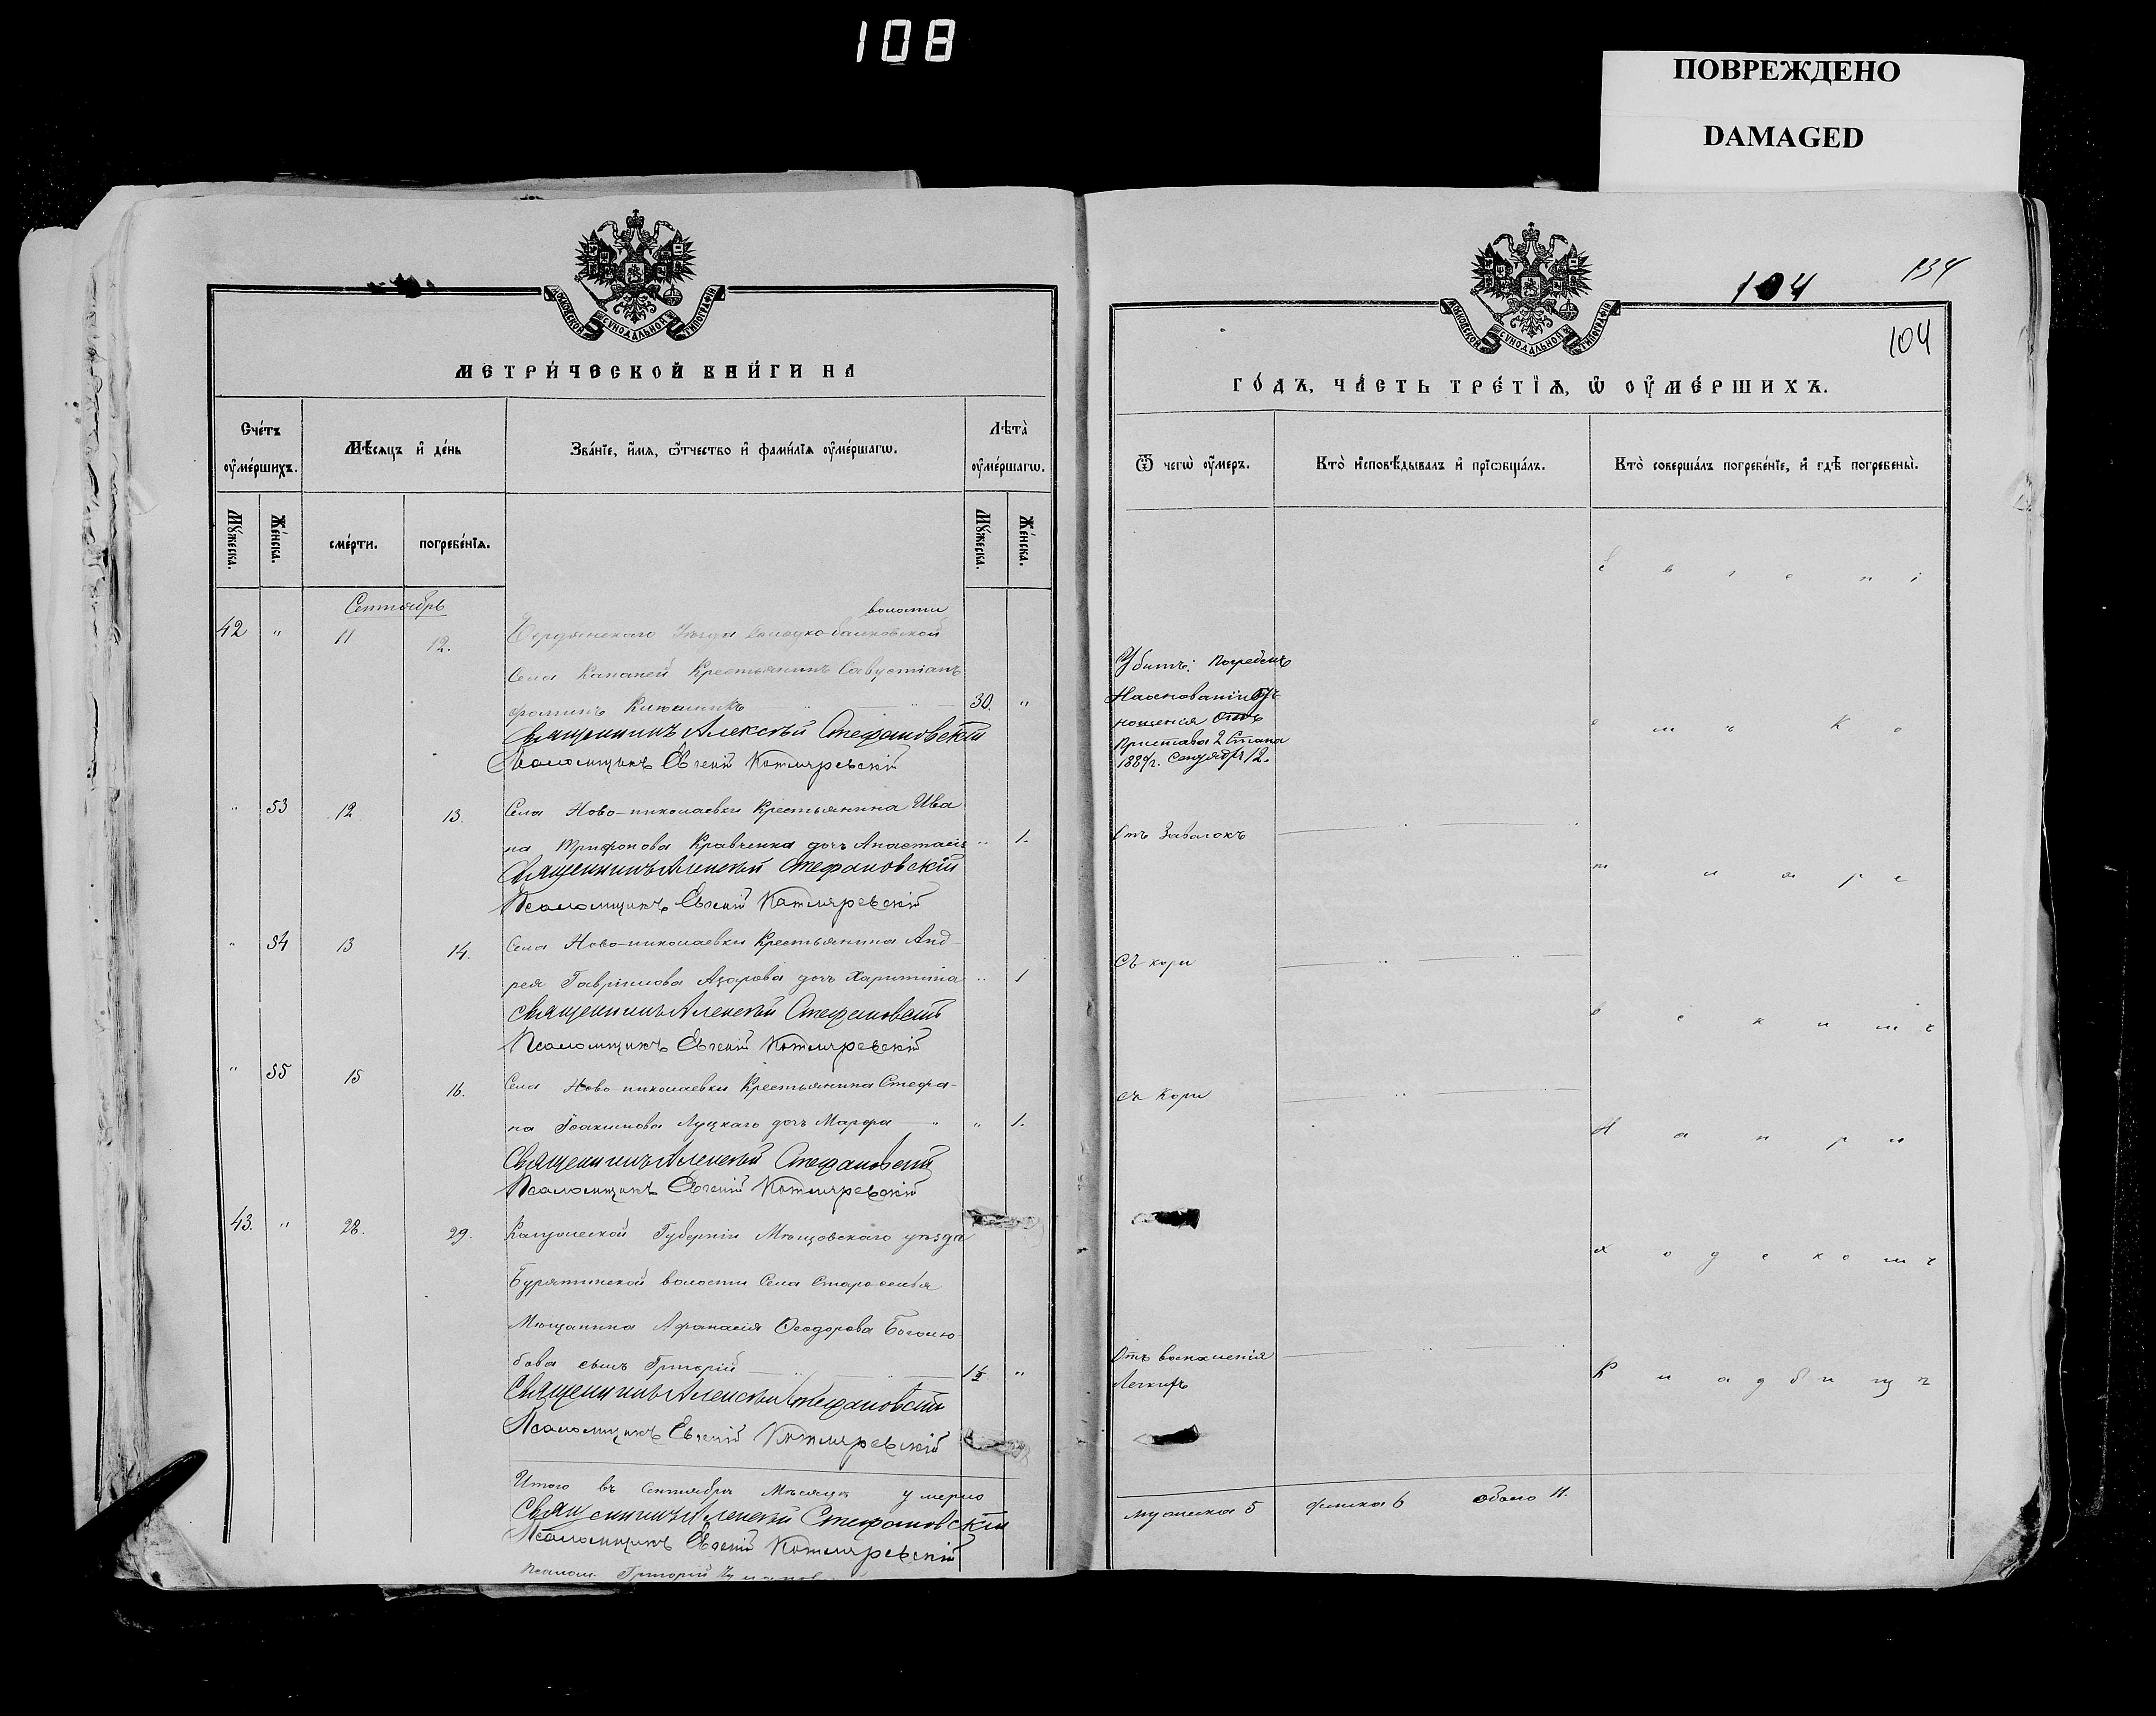 108
ПОВРЕЖДЕНО
DAMAGED
МОСКОВСКОЙ СѴНОДАЛЬНОЙ ТИПОГРАФІИ
МЕТРИ́ЧЕСКОЙ КНИ́ГИ НА
Сче́тъ ᲂу҆ме́ршихъ.
Мѣ́сяцъ и҆ де́нь
Зва́нїе, и҆́мя, ѻ҆́тчество и҆ фами́лїя ᲂу҆ме́ршагѡ.
Лѣта̀ ᲂу҆ме́ршагѡ.
Мꙋ́жеска.
Же́нска.
сме́рти.
погребе́нїѧ.
Мꙋ́жеска.
Же́нска.
Сентябрь
волости
42 " 11 12. Бердянскаго Уѣзда
Села Крестьянинъ Савустіанъ
30. "
Священникъ Алексѣй Стефановскій
Псаломщикъ Евгеній Котляревскій
" 53 12 13. Села Ново-николаевки Крестьянина Ива
на Трифонова Кравченка дочь Анастасія " 1.
Священникъ Алексѣй Стефановскій
Псаломщикъ Евгеній Котляревскій
" 54 13 14. Села Ново-николаевки Крестьянина Анд-
рея Гавріилова Азарова дочь Харитина " 1
Священникъ Алексѣй Стефановскій
Псаломщикъ Евгеній Котляревскій
" 55 15 16. Села Ново николаевки Крестьянина Стефа-
на Іоакимова Луцкаго дочь Марфа " " 1.
Священникъ Алексѣй Стефановскій
Псаломщикъ Евгеній Котляревскій
43. " 28. 29. Калужской Губерніи Мещовскаго уѣзда
Бурятинской волости Села Староселья
Мѣщанина Афанасія Ѳеодорова Боголю-
бова сынъ Григорій "
Священникъ Алексѣй Стефановскій
Псаломщикъ Евгеній Котляревскій
Итого въ Сентябрѣ Мѣсяцѣ умерло
Священникъ Алексѣй Стефановскій
Псаломщикъ Евгеній Котляревскій
Псалом. Григорій
МОСКОВСКОЙ СѴНОДАЛЬНОЙ ТИПОГРАФІИ
104
134
104
ГО́ДЪ, ЧА́СТЬ ТРЕ́ТЇѦ, Ѡ҆ ОУ҆МЕ́РШИХЪ.
Ѿ чегѡ̀ ᲂу҆́меръ.
Кто̀ и҆сповѣ́дывалъ и҆ прїѡбща́лъ.
Кто̀ соверша́лъ погребе́нїе, и҆ гдѣ̀ погребены̀.
Убитъ: Погребенъ
На основаніи от
ношенія
Пристава 2 Стана
188 г. Сентября 12.
Отъ Завалокъ
Съ кори
Съ Кори
Отъ воспаленія
Легкихъ
Евгені
емъ Ко
тляре
вскимъ
На при
ходскомъ
Кладбищѣ
мужеска 5 женска 6 обоего 11.